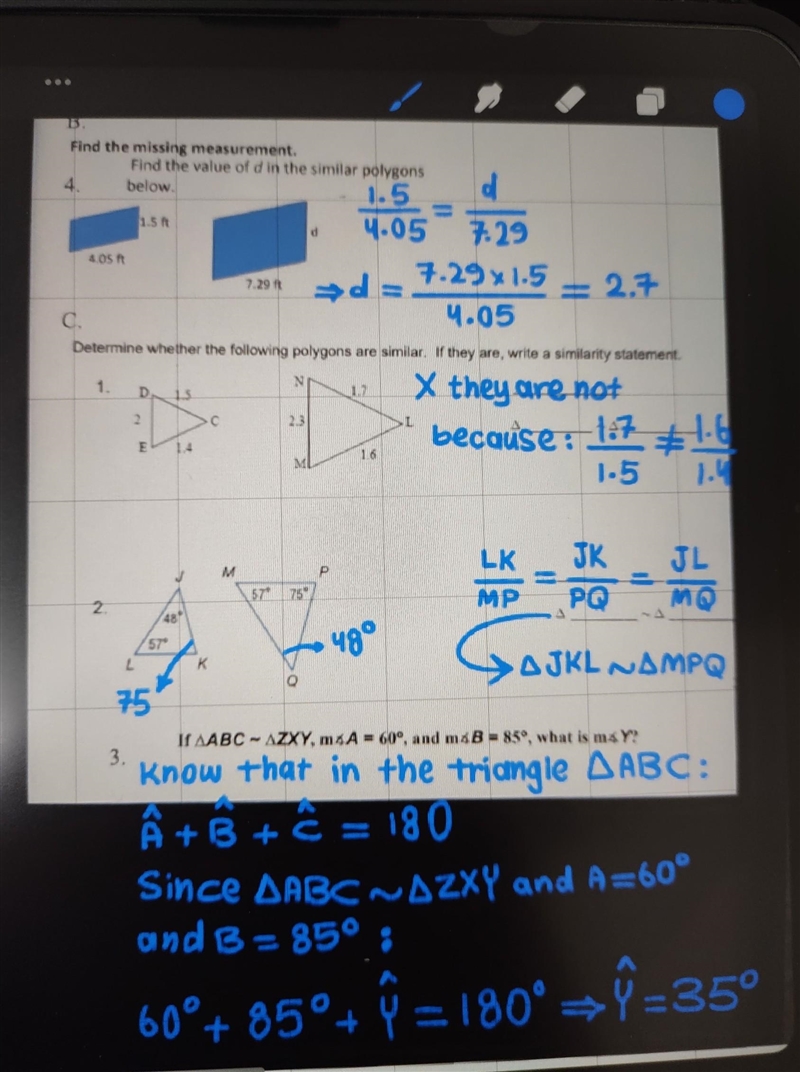 B.
Find the missing measurement.
Find the value of d in the similar polygons
4. below.
1.5 ft
4.05 ft
d
7.29 ft
1.5/4.05 = d/7.29
⇒ d = 7.29 x 1.5/4.05 = 2.7
C.
Determine whether the following polygons are similar. If they are, write a similarity statement.
1.
D 1.5
2 C
E 1.4
N 1.7
2.3 L
M 1.6
X they are not
because: 1.7/1.5 ≠ 1.6/1.4
2.
J
48°
57°
L K
75
M P
57° 75°
48°
Q
LK/MP = JK/PQ = JL/MQ
Δ ______ ~ Δ ______
ΔJKL ~ ΔMPQ
If △ABC ~ △ZXY, m∡A = 60°, and m∡B = 85°, what is m∡Y?
3.
Know that in the triangle ΔABC:
Â + B̂ + Ĉ = 180
Since ΔABC ~ ΔZXY and A = 60°
and B = 85° :
60° + 85° + Ŷ = 180° ⇒ Ŷ = 35°